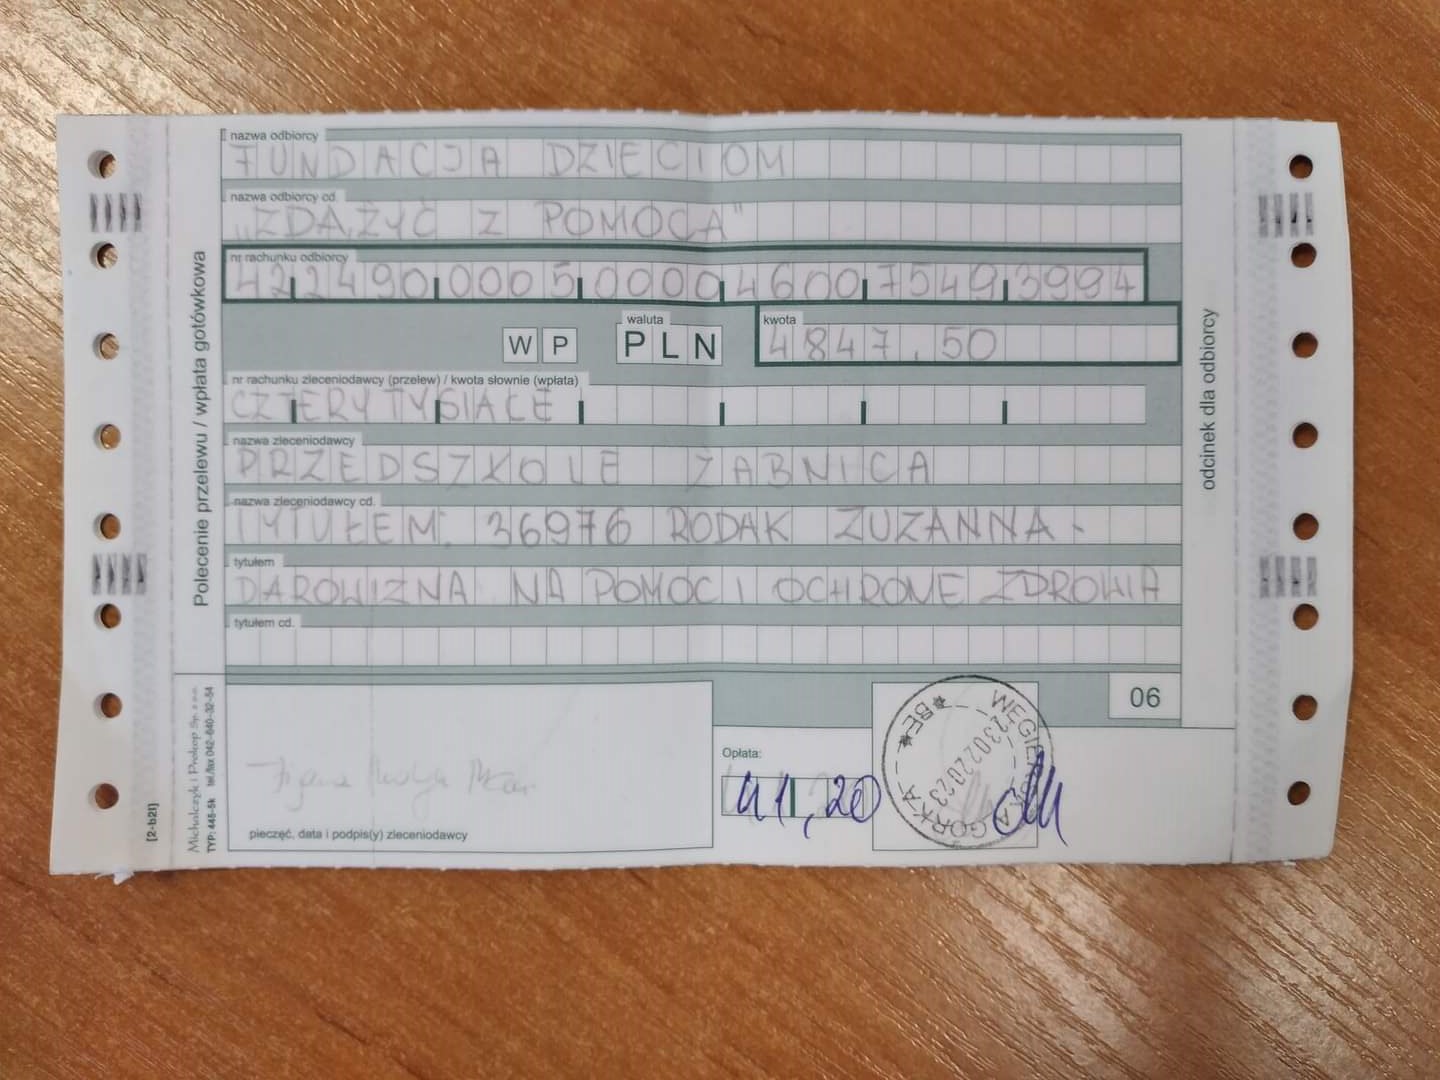 nazwa odbiorcy
FUNDACJA DZIECIOM
nazwa odbiorcy cd.
„ZDĄŻYĆ Z POMOCĄ"
nr rachunku odbiorcy
42 2490 0005 0000 4600 7549 3994
W P
waluta
PLN
kwota
4847,50
nr rachunku zleceniodawcy (przelew) / kwota słownie (wpłata)
CZTERY TYSIĄCE
nazwa zleceniodawcy
PRZEDSZKOLE ŻABNICA
nazwa zleceniodawcy cd.
TYTUŁEM: 36976 RODAK ZUZANNA -
tytułem
DAROWIZNA NA POMOC I OCHRONĘ ZDROWIA
tytułem cd.
06
Opłata:
41,20
pieczęć, data i podpis(y) zleceniodawcy
WĘGIERSKA GÓRKA
23022023
BE
Polecenie przelewu / wpłata gotówkowa
odcinek dla odbiorcy
Michalczyk i Prokop Sp. z o.o.
TYP: 445-5k tel./fax 042-640-32-54
[2-b2l]